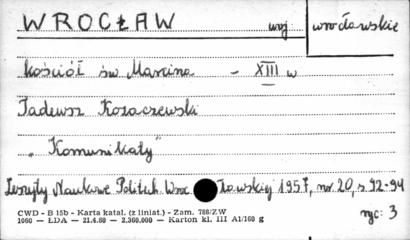 WROCŁAW woj. wrocławskie
kościół św Marcina - XIII w
Tadeusz Kozaczewski
"Komunikaty"
Zeszyty Naukowe Politech. Wrocławskiej 1957, nr 20, s 92-94
ryc: 3
CWD - B 15b - Karta katal. (z liniat.) - Zam. 788/ZW
1060 — ŁDA — 21.4.60 — 2.360.000 — Karton kl. III A1/160 g